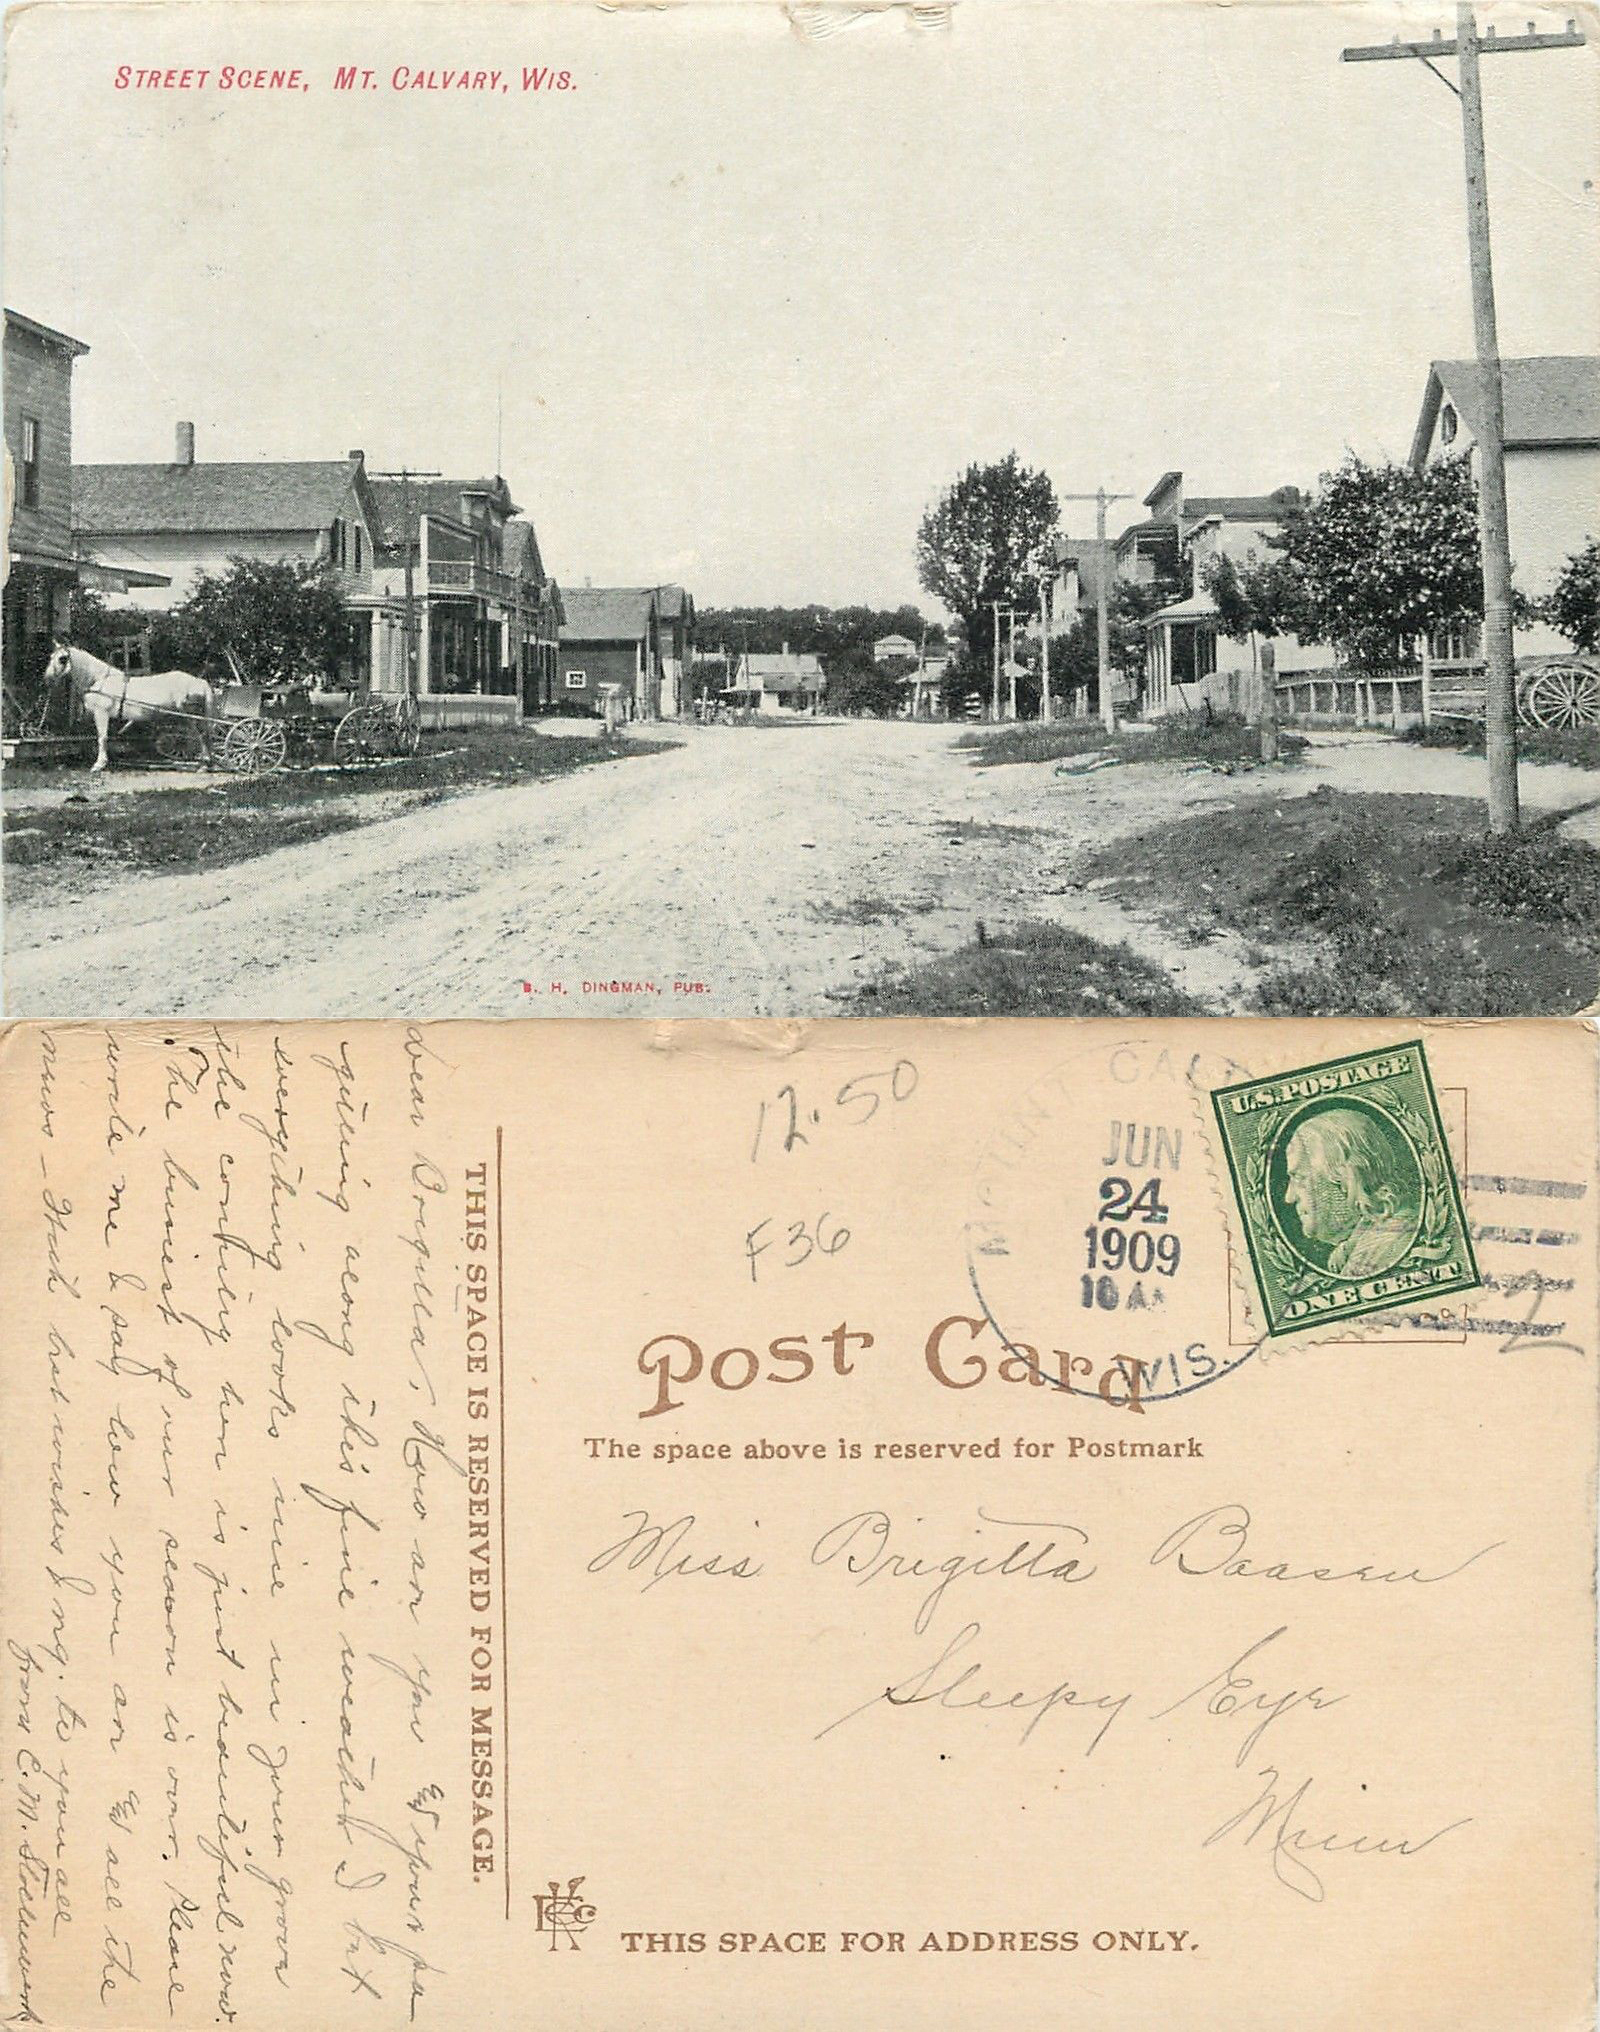 STREET SCENE, MT. CALVARY, WIS.
H. DINGMAN, PUB.
12.50
F36
MOUNT CALV
JUN
24
1909
10 A
WIS.
U.S. POSTAGE
ONE CENT
2
Post Card
The space above is reserved for Postmark
Miss Brigitta Baasen
Sleepy Eye
Minn
THIS SPACE FOR ADDRESS ONLY.
THIS SPACE IS RESERVED FOR MESSAGE.
Dear Brigitta, How are you & your pa
getting along this fine weather I bet
everything looks nice in your grove
the country here is just beautiful now.
The busiest of our season is over. Please
write me & say how you are & all the
news – With best wishes & rig. to you all
from C. M.